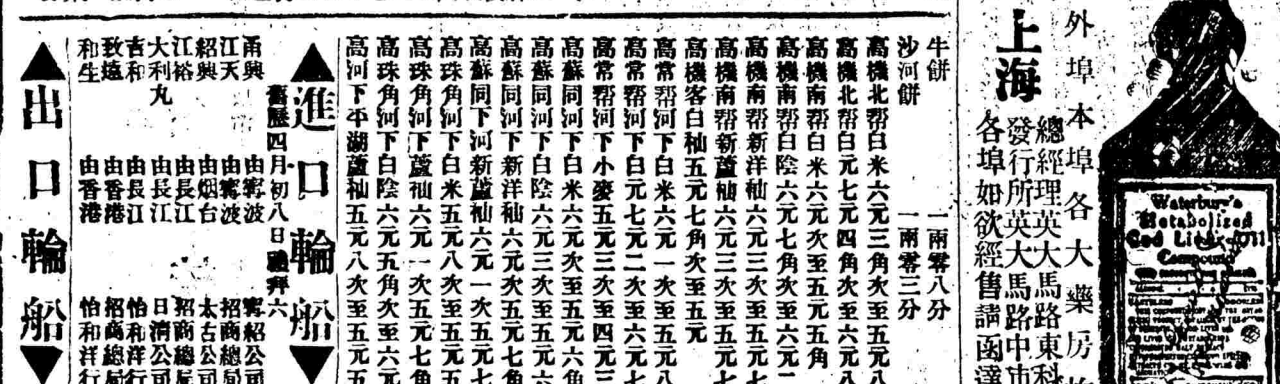 外埠本埠各大藥房均
上海
總經理英大馬路東科
發行所英大馬路中市
各埠如欲經售請函達
Waterbury's
Metabolized
Cod Liver Oil
Compound
牛餅 一兩零八分
沙河餅 一兩零三分
高機北帮白米六元三角次至五元八
高機北帮白元七元四角次至六元八
高機南帮白米六元次至五元五角
高機南帮白陰六元七角次至六元二
高機南帮新洋秈六元三次至五元七
高機南帮新蘆秈六元次至五元七
高機客白秈五元七角次至五元
高常帮河下白米六元一次至五元七
高常帮河下白元七元二次至六元七
高常帮河下小麥五元三次至四元
高蘇同河下白米六元次至五元六角
高蘇同河下白陰六元三次至五元
高蘇同河下新洋秈六元次五元七角
高蘇同下河新蘆秈六元一次五元七
高珠角河下白米五元八次至五元五
高珠角河下蘆秈六元一次五元七角
高珠角河下白陰六元五角次至六元
高河下平湖蘆秈五元八次至五元五
▲進口輪船▼
舊歷四月初八日禮拜六
甬興 由寗波 寗紹公司
江天 由寗波 招商總局
紹興 由烟台 太古公司
江裕 由長江 招商總局
大利丸 由長江 日清公司
吉和 由長江 怡和洋行
致遠 由香港 招商總局
和生 由香港 怡和洋行
▲出口輪船▼